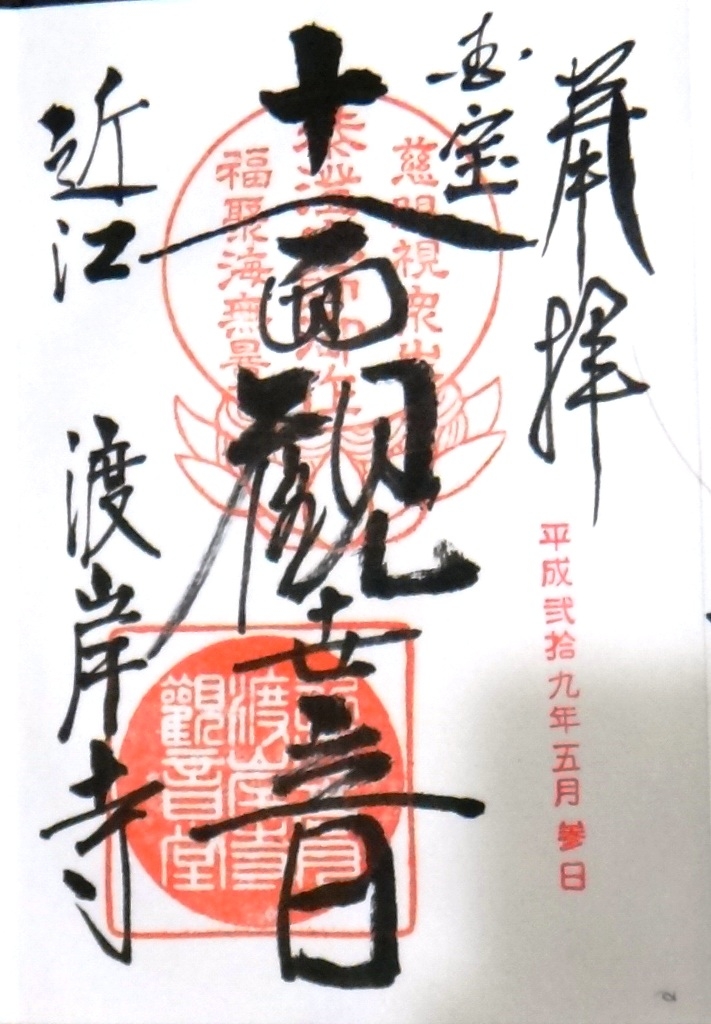 奉拝
国宝
十一面觀世音
近江 渡岸寺
平成弐拾九年五月参日
慈眼視衆生
福聚海無量
渡岸寺
觀音堂